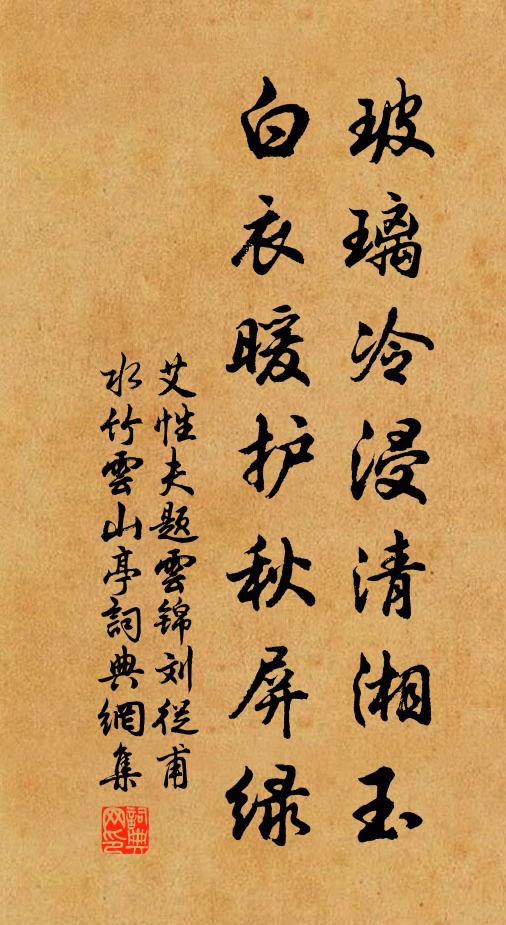 玻璃冷浸清湘玉
白衣暖护秋屏绿
艾性夫题雲锦刘從甫
水竹雲山亭詞典網集
詞典
网印